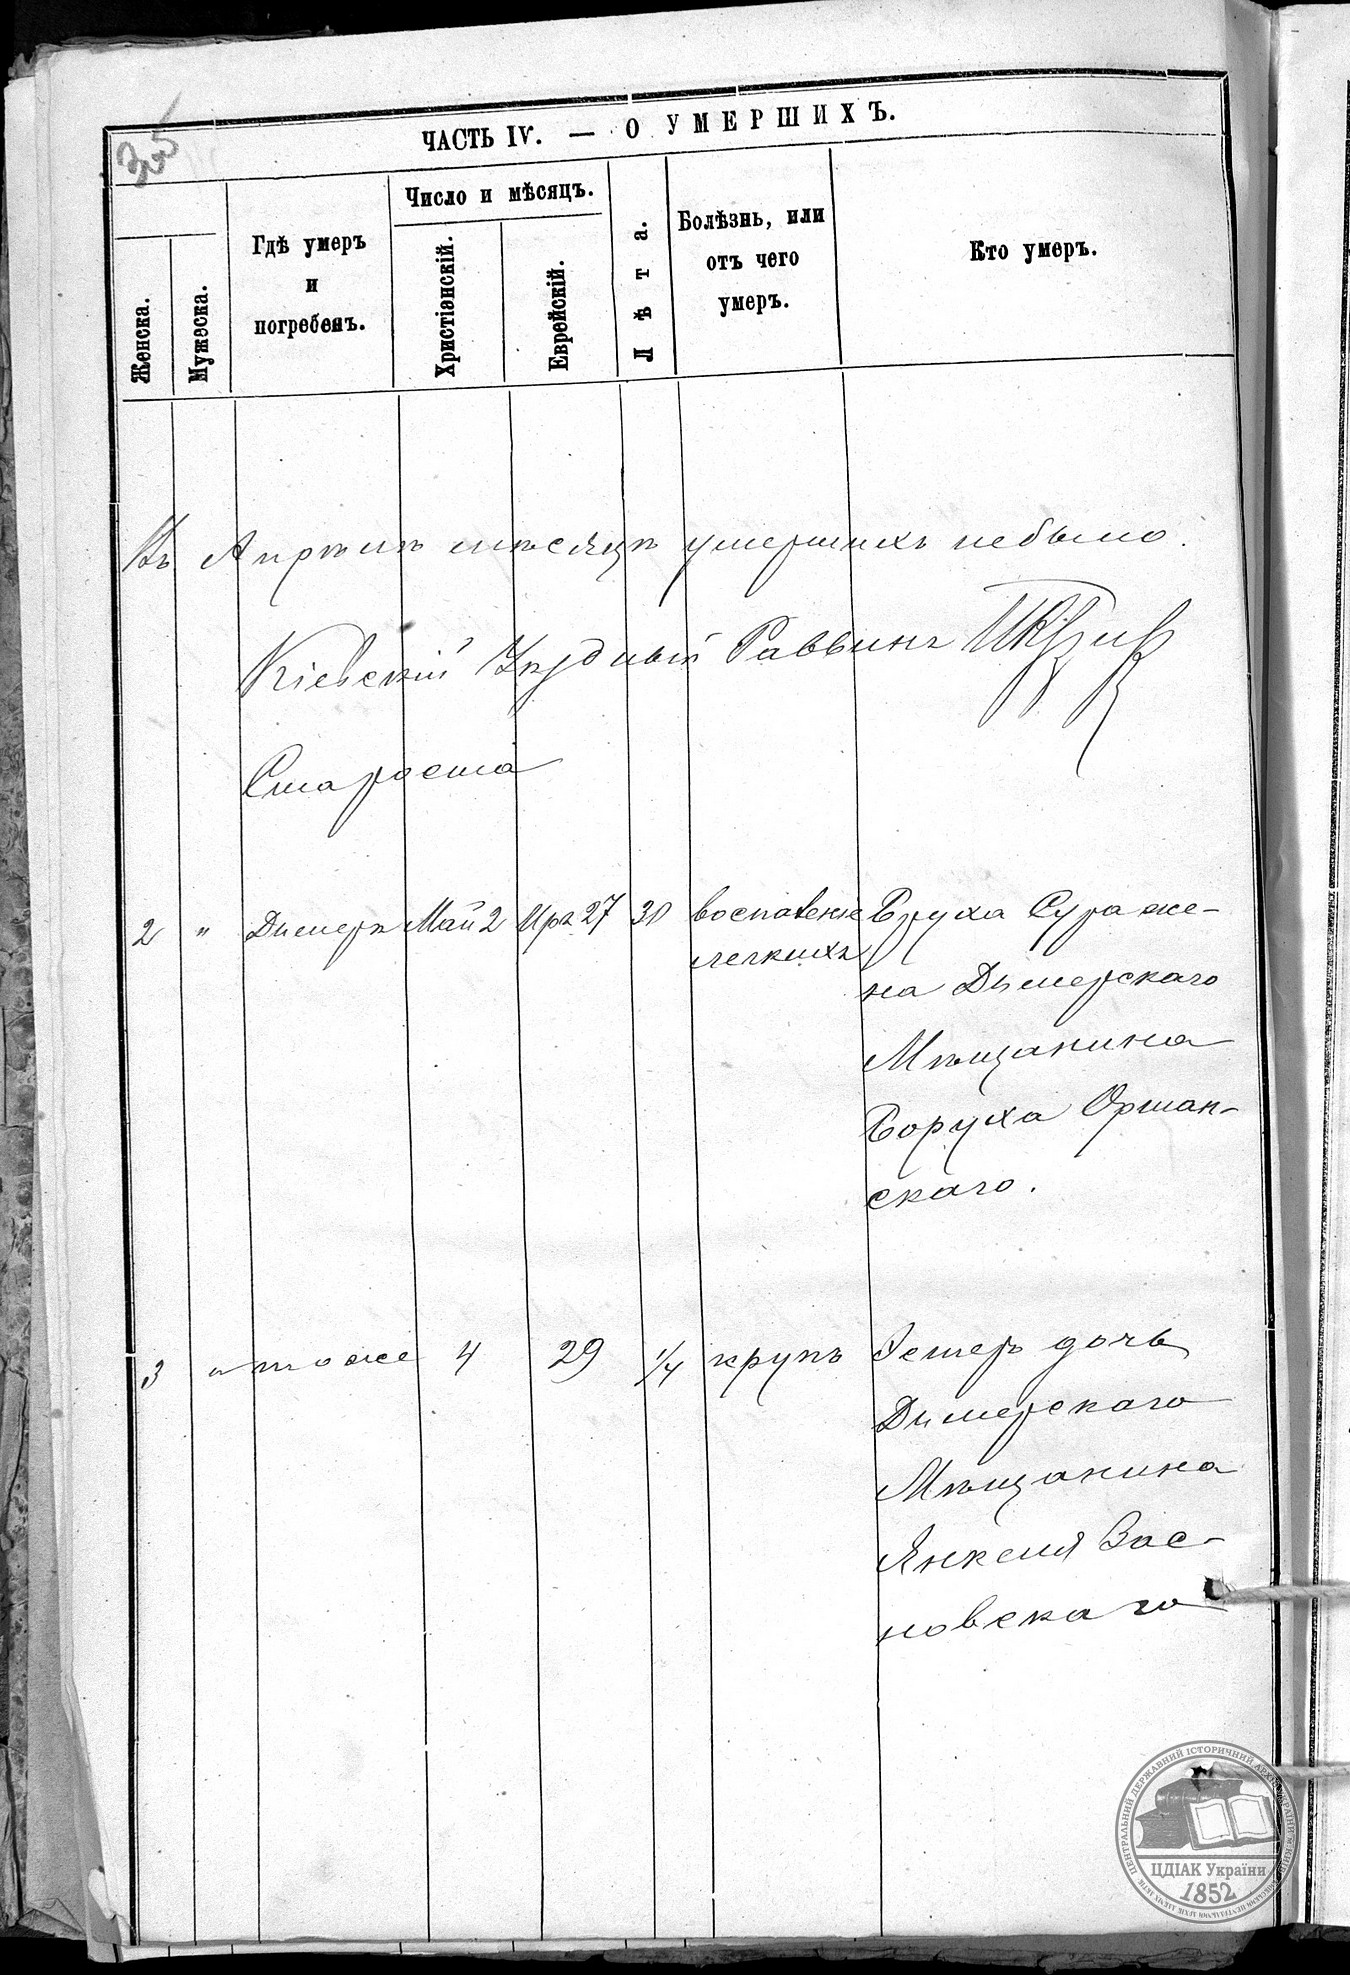 325
ЧАСТЬ IV. — О УМЕРШИХЪ.
Женска.
Мужеска.
Гдѣ умеръ
и
погребенъ.
Число и мѣсяцъ.
Христіанскій.
Еврейскій.
Лѣта.
Болѣзнь, или
отъ чего
умеръ.
Кто умеръ.
Въ Апрѣлѣ мѣсяцѣ умершихъ небыло.
Кіевскій Уѣздный Раввинъ
Староста
2 " Дымеръ Май 2 Іiръ 27 30 воспаленіе Бруха Сура же-
легкихъ
на Дымерскаго
Мѣщанина
Боруха Оршан-
скаго.
3 " тоже 4 29 1/4 крупъ Эстеръ дочь
Дымерскаго
Мѣщанина
Янкеля Вас-
новскаго
ЦЕНТРАЛЬНИЙ ДЕРЖАВНИЙ ІСТОРИЧНИЙ АРХІВ УКРАЇНИ М. КИЇВ
ЦДІАК України
1852